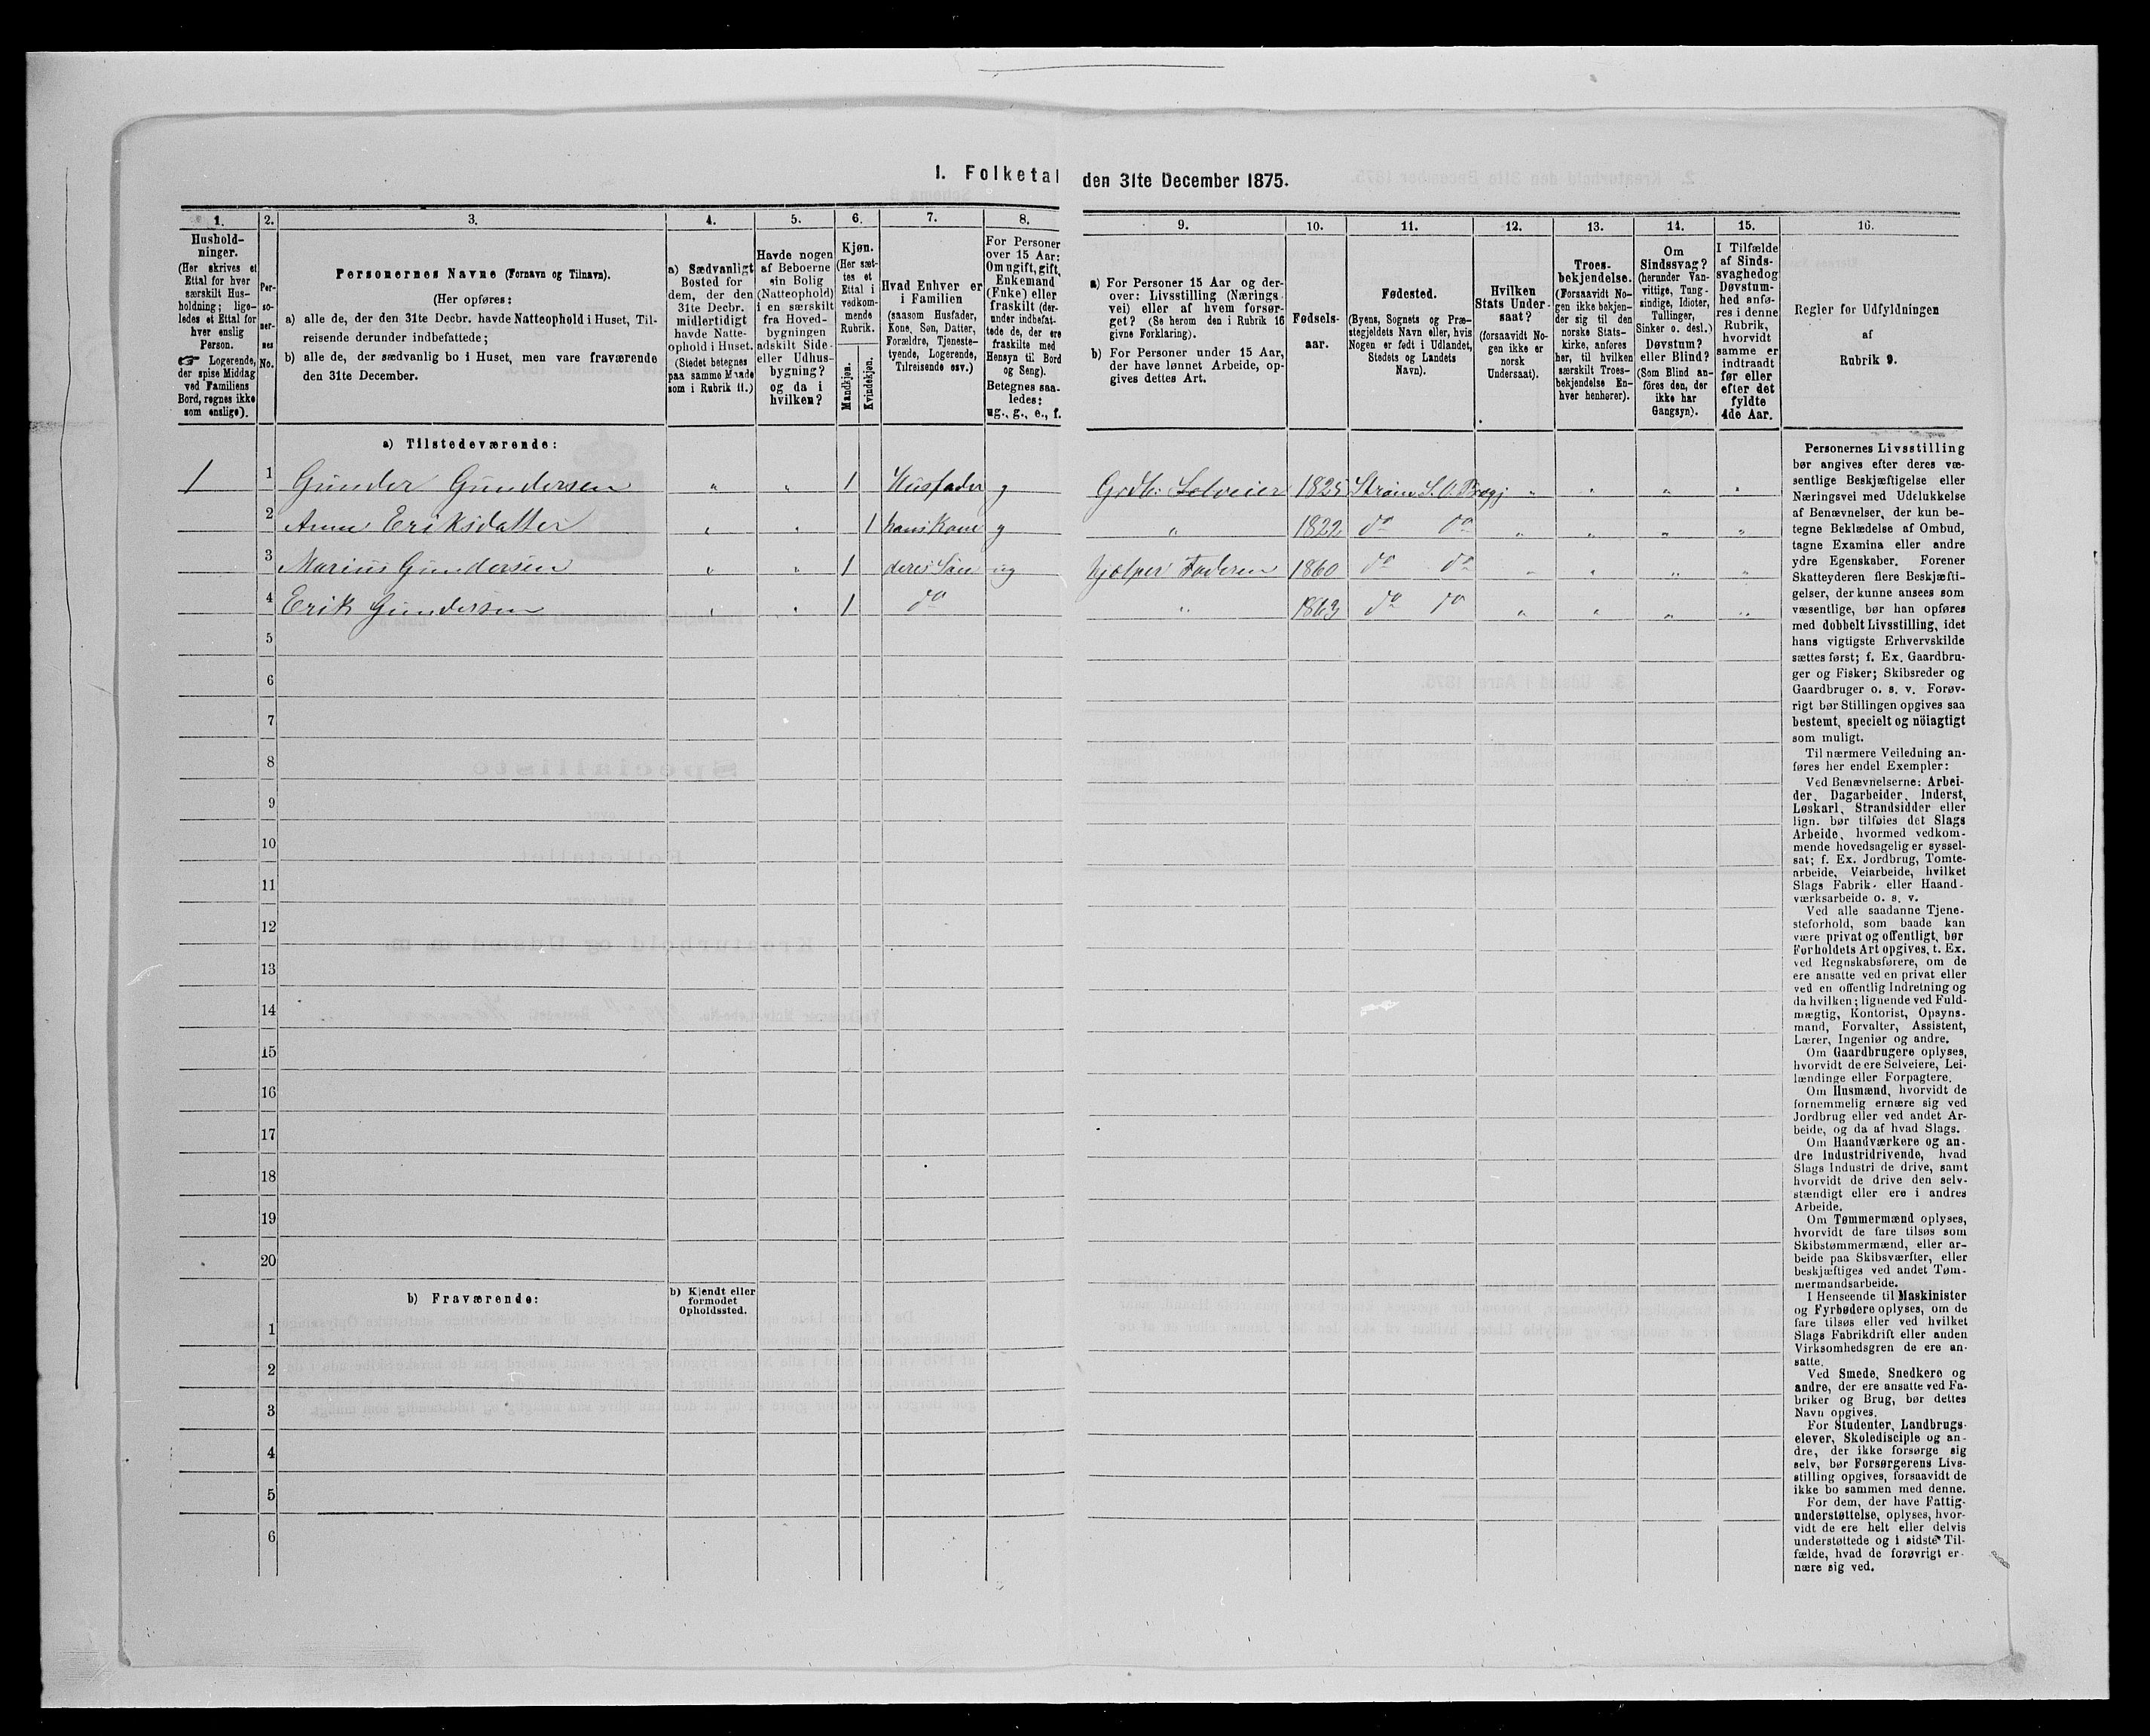 1. Folketal den 31te December 1875.
1. 2. 3. 4. 5. 6. 7. 8. 9. 10. 11. 12. 13. 14. 15. 16.
Hushold-
ninger.
(Her skrives et
Ettal for hver
særskilt Hus-
holdning; lige-
ledes et Ettal for
hver enslig
Person.
☞ Logerende,
der spise Middag
ved Familiens
Bord, regnes ikke
som enslige).
Per-
so-
ner-
nes
No.
Personernes Navne (Fornavn og Tilnavn).
(Her opføres:
a) alle de, der den 31te Decbr. havde Natteophold i Huset, Til-
reisende derunder indbefattede;
b) alle de, der sædvanlig bo i Huset, men vare fraværende
den 31te December.
a) Sædvanligt
Bosted for
dem, der den
31te Decbr.
midlertidigt
havde Natte-
ophold i Huset.
(Stedet betegnes
paa samme Maade
som i Rubrik 11.)
Havde nogen
af Beboerne
sin Bolig
(Natteophold)
i en særskilt
fra Hoved-
bygningen
adskilt Side-
eller Udhus-
bygning?
og da i
hvilken?
Kjøn.
(Her sæt-
tes et
Ettal i
vedkom-
mende
Rubrik.
Mandkjøn.
Kvindekjøn.
Hvad Enhver er
i Familien
(saasom Husfader,
Kone, Søn, Datter,
Forældre, Tjeneste-
tyende, Logerende,
Tilreisende osv.)
For Personer
over 15 Aar:
Om ugift, gift,
Enkemand
(Enke) eller
fraskilt (der-
under indbefat-
tede de, der ere
fraskilte med
Hensyn til Bord
og Seng).
Betegnes saa-
ledes:
ug., g., e., f.
a) For Personer 15 Aar og der-
over: Livsstilling (Nærings-
vei) eller af hvem forsør-
get? (Se herom den i Rubrik 16
givne Forklaring).
b) For Personer under 15 Aar,
der have lønnet Arbeide, op-
gives dettes Art.
Fødsels-
aar.
Fødested.
(Byens, Sognets og Præ-
stegjeldets Navn eller, hvis
Nogen er født i Udlandet,
Stedets og Landets
Navn).
Hvilken
Stats Under-
saat?
(forsaavidt No-
gen ikke er
norsk
Undersaat).
Troes-
bekjendelse.
(Forsaavidt No-
gen ikke bekjen-
der sig til den
norske Stats-
kirke, anføres
her, til hvilken
særskilt Troes-
bekjendelse En-
hver henhører).
Om
Sindssvag?
(herunder Van-
vittige, Tung-
sindige, Idioter,
Tullinger,
Sinker o. desl.)
Døvstum?
eller Blind?
(Som Blind an-
føres den, der
ikke har
Gangsyn).
I Tilfælde
af Sinds-
svaghed og
Døvstum-
hed anfø-
res i denne
Rubrik,
hvorvidt
samme er
indtraadt
før eller
efter det
fyldte
4de Aar.
Regler for Udfyldningen
af
Rubrik 9.
a) Tilstedeværende:
1 1 Gunder Gundersen „ „ 1 Husfader g Grdbr. Selveier 1825 Strøm S. O. „ „ „ „
2 Anne Eriksdatter „ „ 1 hans Kone g „ 1822 do do „ „ „ „
3 Marius Gundersen „ „ 1 deres Søn ug hjælper Faderen 1860 do do „ „ „ „
4 Erik Gundersen „ „ 1 do „ 1863 do do „ „ „ „
5
6
7
8
9
10
11
12
13
14
15
16
17
18
19
20
b) Fraværende:
b) Kjendt eller
formodet
Opholdssted.
1
2
3
4
5
6
Personernes Livsstilling
bør angives efter deres væ-
sentlige Beskjæftigelse eller
Næringsvei med Udelukkelse
af Benævnelser, der kun be-
tegne Beklædelse af Ombud,
tagne Examina eller andre
ydre Egenskaber. Forener
Skatteyderen flere Beskjæfti-
gelser, der kunne ansees som
væsentlige, bør han opføres
med dobbelt Livsstilling, idet
hans vigtigste Erhvervskilde
sættes først; f. Ex. Gaardbru-
ger og Fisker; Skibsreder og
Gaardbruger o. s. v. Forøv-
rigt bør Stillingen opgives saa
bestemt, specielt og nöiagtigt
som muligt.
Til nærmere Veiledning an-
føres her endel Exempler:
Ved Benævnelserne: Arbei-
der, Dagarbeider, Inderst,
Løskarl, Strandsidder eller
lign. bør tilføies det Slags
Arbeide, hvormed vedkom-
mende hovedsagelig er syssel-
sat; f. Ex. Jordbrug, Tomte-
arbeide, Veiarbeide, hvilket
Slags Fabrik- eller Haand-
værksarbeide o. s. v.
Ved alle saadanne Tjene-
steforhold, som baade kan
være privat og offentligt, bør
Forholdets Art opgives, t. Ex.
ved Regnskabsførere, om de
ere ansatte ved en privat eller
ved en offentlig Indretning og
da hvilken; lignende ved Fuld-
mægtig, Kontorist, Opsyns-
mand, Forvalter, Assistent,
Lærer, Ingeniør og andre.
Om Gaardbrugere oplyses,
hvorvidt de ere Selveiere, Lei-
lændinge eller Forpagtere.
Om Husmænd, hvorvidt de
fornemmelig ernære sig ved
Jordbrug eller ved andet Ar-
beide, og da af hvad Slags.
Om Haandværkere og an-
dre Industridrivende, hvad
Slags Industri de drive, samt
hvorvidt de drive den selv-
stændigt eller ere i andres
Arbeide.
Om Tømmermænd oplyses,
hvorvidt de fare tilsøs som
Skibstømmermænd, eller ar-
beide paa Skibsværfter, eller
beskjæftiges ved andet Tøm-
mermandsarbeide.
I Henseende til Maskinister
og Fyrbødere oplyses, om de
fare tilsøs eller ved hvilket
Slags Fabrikdrift eller anden
Virksomhedsgren de ere an-
satte.
Ved Smede, Snedkere og
andre, der ere ansatte ved Fa-
briker og Brug, bør dettes
Navn opgives.
For Studenter, Landbrugs-
elever, Skoledisciple og an-
dre, der ikke forsørge sig
selv, bør Forsørgerens Livs-
stilling opgives, forsaavidt de
ikke bo sammen med denne.
For dem, der have Fattig-
understøttelse, oplyses, hvor-
vidt de ere helt eller delvis
understøttede og i sidste Til-
fælde, hvad de forøvrigt er-
nære sig ved.